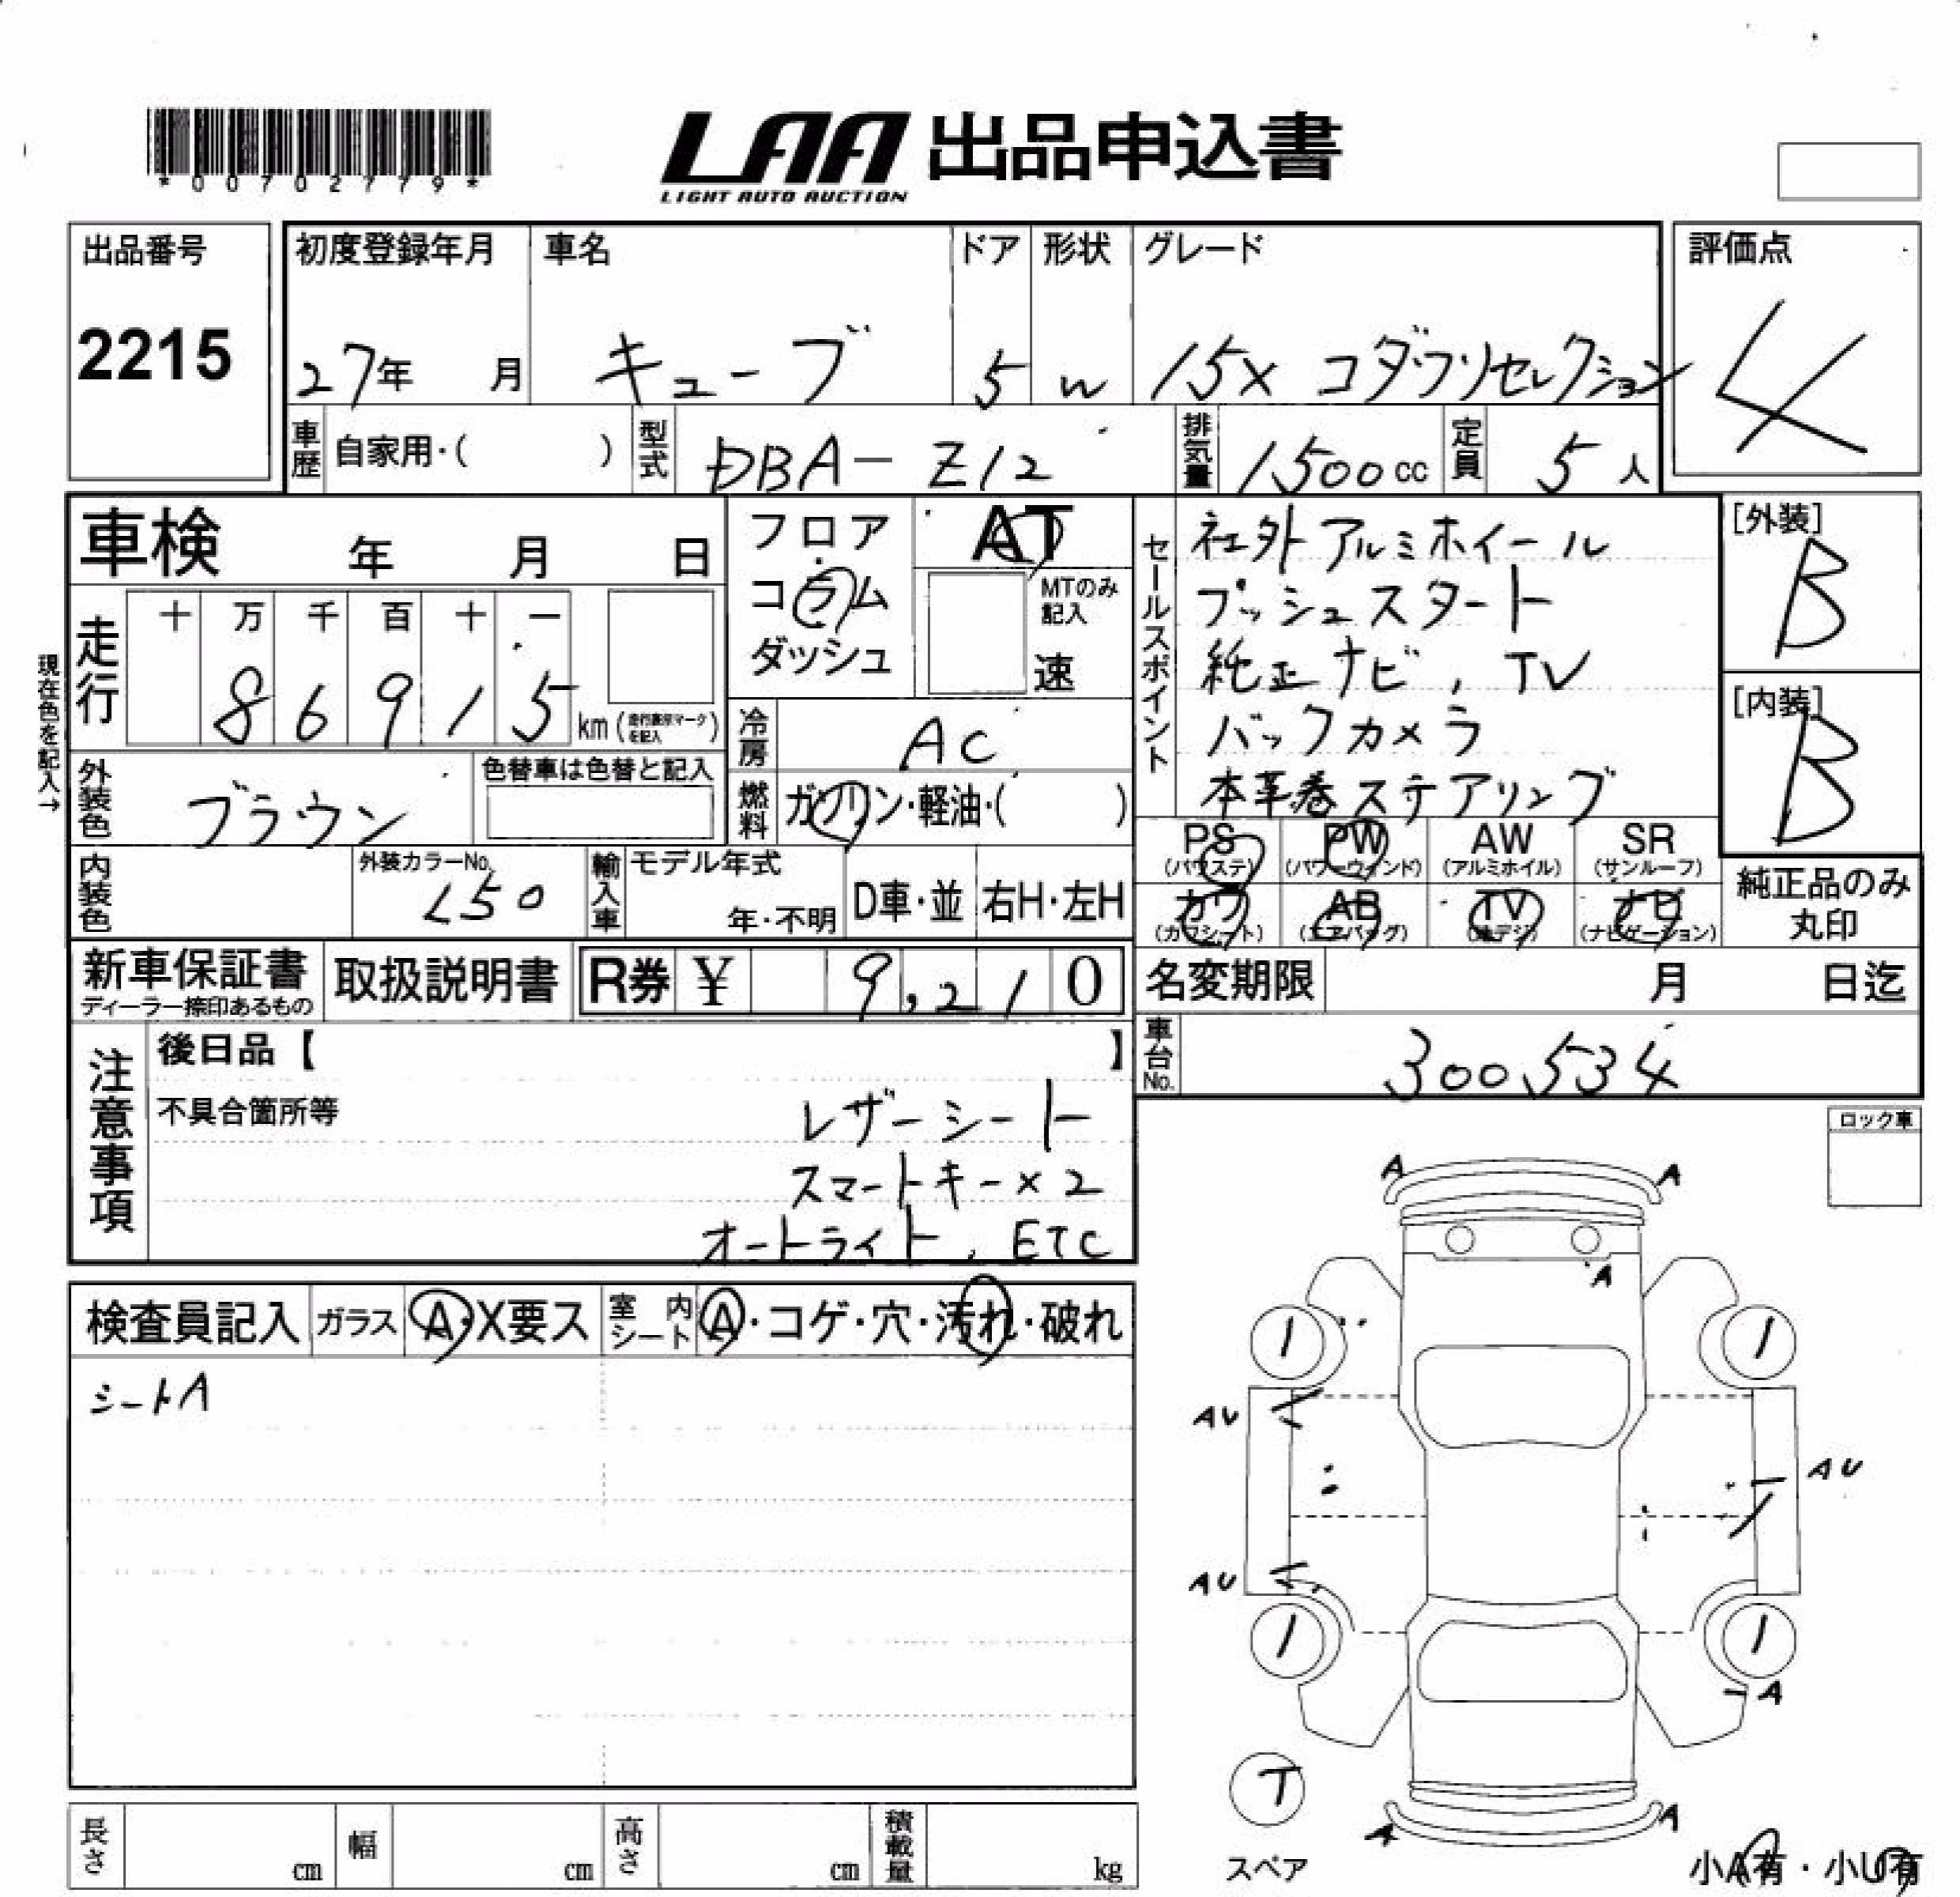 *00702779*
LAA 出品申込書
LIGHT AUTO AUCTION
出品番号
2215
初度登録年月
27年 月
車名
キューブ
ドア
5
形状
W
グレード
15X コダワリセレクション
評価点
4
車歴 自家用・( )
型式 DBA-Z12
排気量 1500cc
定員 5人
車検 年 月 日
フロア・コラム
ダッシュ
AT
MTのみ
記入
速
セールスポイント
社外アルミホイール
プッシュスタート
純正ナビ, TV
バックカメラ
本革巻ステアリング
[外装]
B
[内装]
B
現在色を記入→
走行
十 万 千 百 十 一
8 6 9 1 5
km (走行表示マークを記入)
冷房 AC
燃料 ガソリン・軽油・( )
外装色 ブラウン
色替車は色替と記入
内装色
外装カラーNo.
L50
輸入車
モデル年式
年・不明
D車・並
右H・左H
PS
(パワステ)
PW
(パワーウィンド)
AW
(アルミホイル)
SR
(サンルーフ)
カワ
(カワシート)
AB
(エアバッグ)
TV
(地デジ)
ナビ
(ナビゲーション)
純正品のみ
丸印
新車保証書
ディーラー捺印あるもの
取扱説明書
R券 ¥ 9,210
名変期限 月 日迄
車台No. 300534
注意事項
後日品【 】
不具合箇所等
レザーシート
スマートキー×2
オートライト, ETC
ロック車
検査員記入
ガラス
A・X要ス
室内
シート
A・コゲ・穴・汚れ・破れ
シートA
A
A
A
1
1
AU
AU
AU
1
1
A
T
スペア
A
A
小A有・小U有
長さ cm
幅 cm
高さ cm
積載量 kg